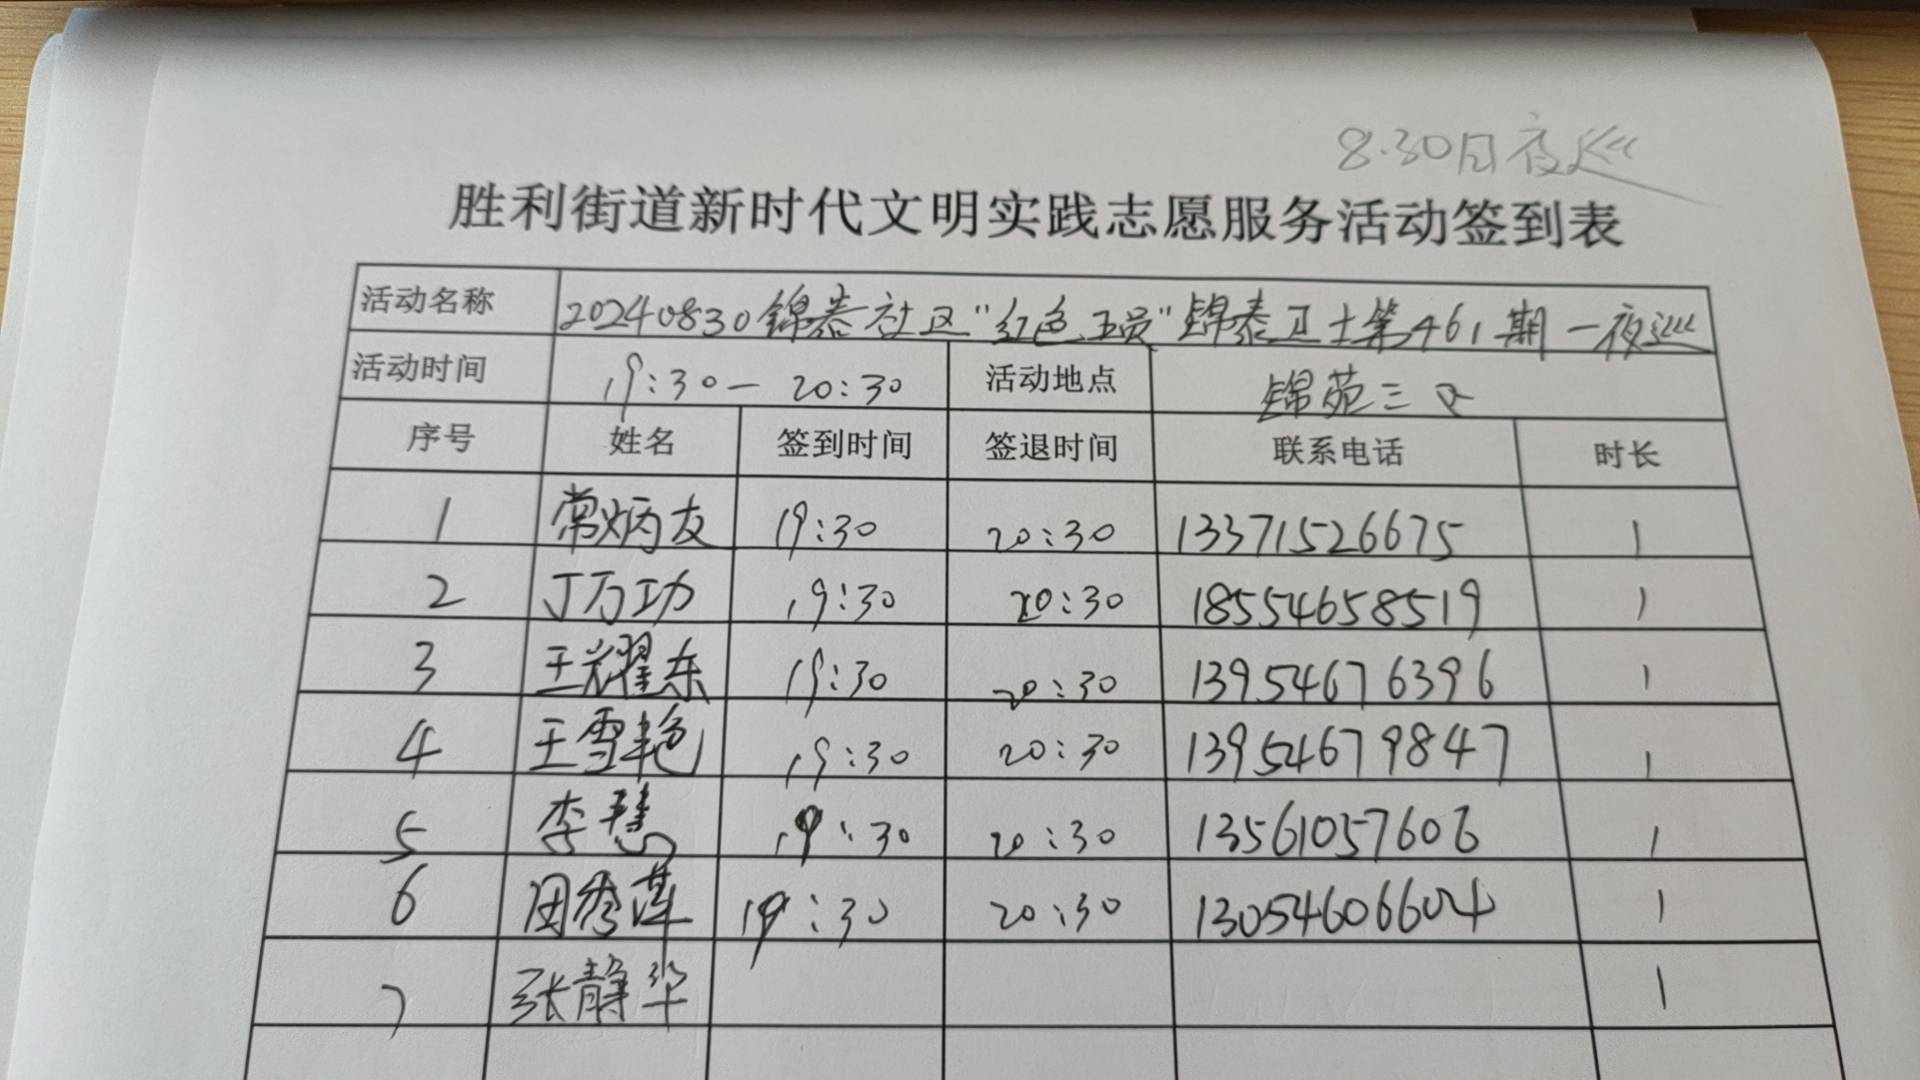 8.30日夜巡
胜利街道新时代文明实践志愿服务活动签到表
活动名称 20240830锦泰社区"红色五员"锦泰卫士第461期一夜巡
活动时间 19:30—20:30 活动地点 锦苑三区
序号 姓名 签到时间 签退时间 联系电话 时长
1 常炳友 19:30 20:30 13371526675 1
2 丁万功 19:30 20:30 18554658519 1
3 王耀东 19:30 20:30 13954676396 1
4 王雪艳 19:30 20:30 13954679847 1
5 李慧 19:30 20:30 13561057606 1
6 周秀莲 19:30 20:30 13054606604 1
7 张静华 1